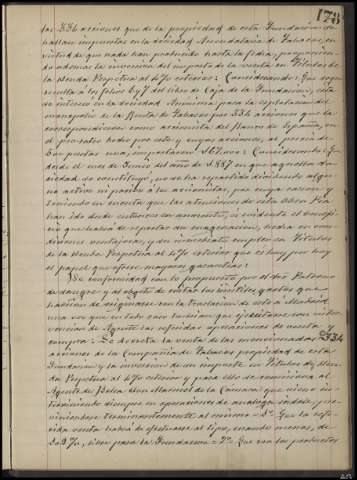 178
las 334 acciones que de la propiedad de esta Fundacion se
hallan impuestas en la Sociedad Arrendataria de Tabacos, en
virtud de que nada han producido hasta la fecha, proponien
do ademas la inversion del importe de la venta en Títulos de
la Renta Perpetua al 4% esterior: Considerando: Que segun
resulta á los folios 6 y 7 del libro de Caja de la Fundacion, esta
se intereso en la Sociedad Anonima para la esplotacion del
monopolio de la Renta de Tabacos por 334 acciones que la
correspondieron como accionista del Banco de España, en
el prorrateo hecho por este y cuyas acciones, al precio de
500 pesetas una, importaron 167.000: Considerando: Que
desde el mes de Junio del año de 1.887 en que aquella so
ciedad se constituyó, no se ha repartido dividendo algu
no activo ni pasivo á los accionistas, por cuya razon y
teniendo en cuenta que las atenciones de esta Obra Pia
han ido desde entonces en aumento, es evidente el benefi
cio que habrá de reportar su enagenacion, hecha en con
diciones ventajosas, y su inmediato empleo en Títulos
de la Deuda Perpetua al 4% esterior que es hoy por hoy
el papel que ofrece mayores garantías:
De conformidad con lo propuesto por el Sor Patrono
de sangre y al objeto de evitar los inútiles gastos que
habrían de originarse con la traslacion de este á Madrid,
una vez que en todo caso tendrian que ejecutarse con inter
vencion de Agente las referidas operaciones de venta y
compra: Se decreta la venta de las mencionadas 334
acciones de la Compañia de Tabacos propiedad de esta
Fundacion y la inversion de su importe en Títulos de Deu
da Perpetua al 4% esterior y para ello se comisiona al
Agente de Bolsa Don Manuel de la Cámara que viene in
terviniendo siempre en operaciones de analoga índole, pre
viniéndose terminantemente al mismo = 1º Que la refe
rida venta habrá de efectuarse al tipo, cuando menos, de
%, libre para la Fundacion = 2º Que con los productos